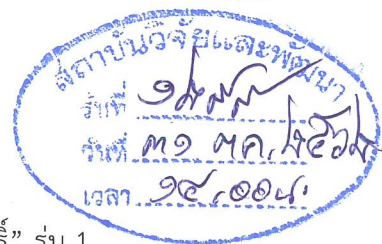 สถาบันวิจัยและพัฒนา
รับที่
วันที่ ๓๑ ตค. ๒๕๖๒
เวลา ๑๔.๐๐น.
” รุ่น 1